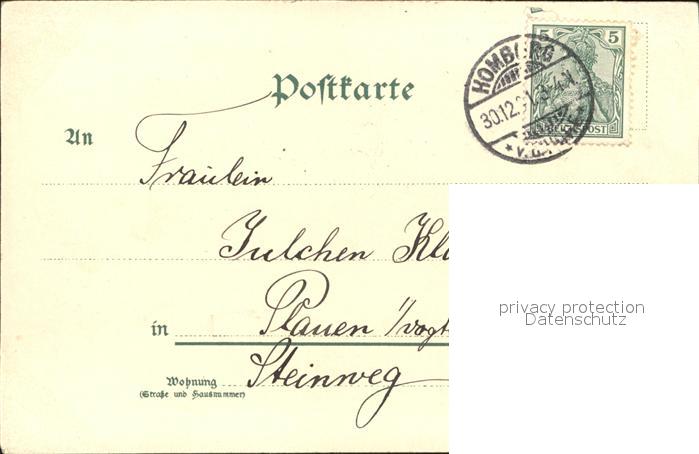 5 5
REICHSPOST
HOMBURG
30.12.
v.d.
Postkarte
An
Fräulein
Julchen Kl
in Plauen i/vogt
Wohnung Steinweg
(Straße und Hausnummer)
privacy protection
Datenschutz